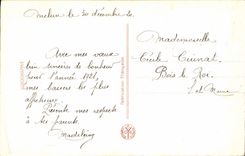 Melun le 30 décembre 20.
Avec mes vœux
bien sincères de bonheur
pour l'année 1921,
mes baisers les plus
affectueux.
Présente mes respects
à tes parents.
Madeleine
Mademoiselle
Cécile
Bois le Roi
S et Marne